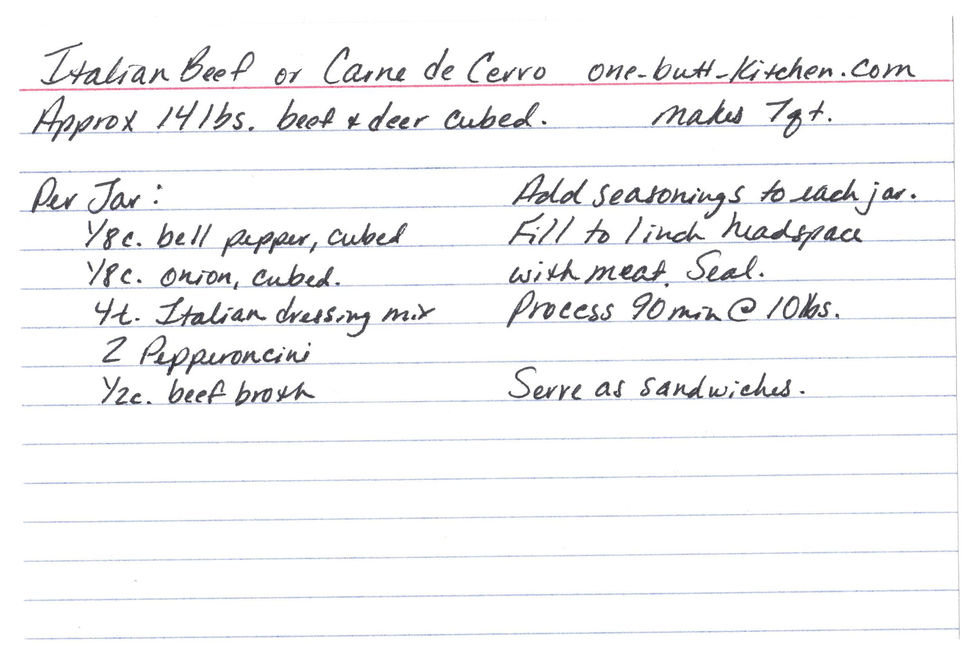 Italian Beef or Carne de Cervo one-butt-kitchen.com
Approx 14 lbs. beef & deer cubed. makes 7 qt.
Per Jar:
1/8 c. bell pepper, cubed
1/8 c. onion, cubed.
4 t. Italian dressing mix
2 Pepperoncini
1/2 c. beef broth
Add seasonings to each jar.
Fill to 1 inch headspace
with meat. Seal.
Process 90 min @ 10 lbs.
Serve as sandwiches.